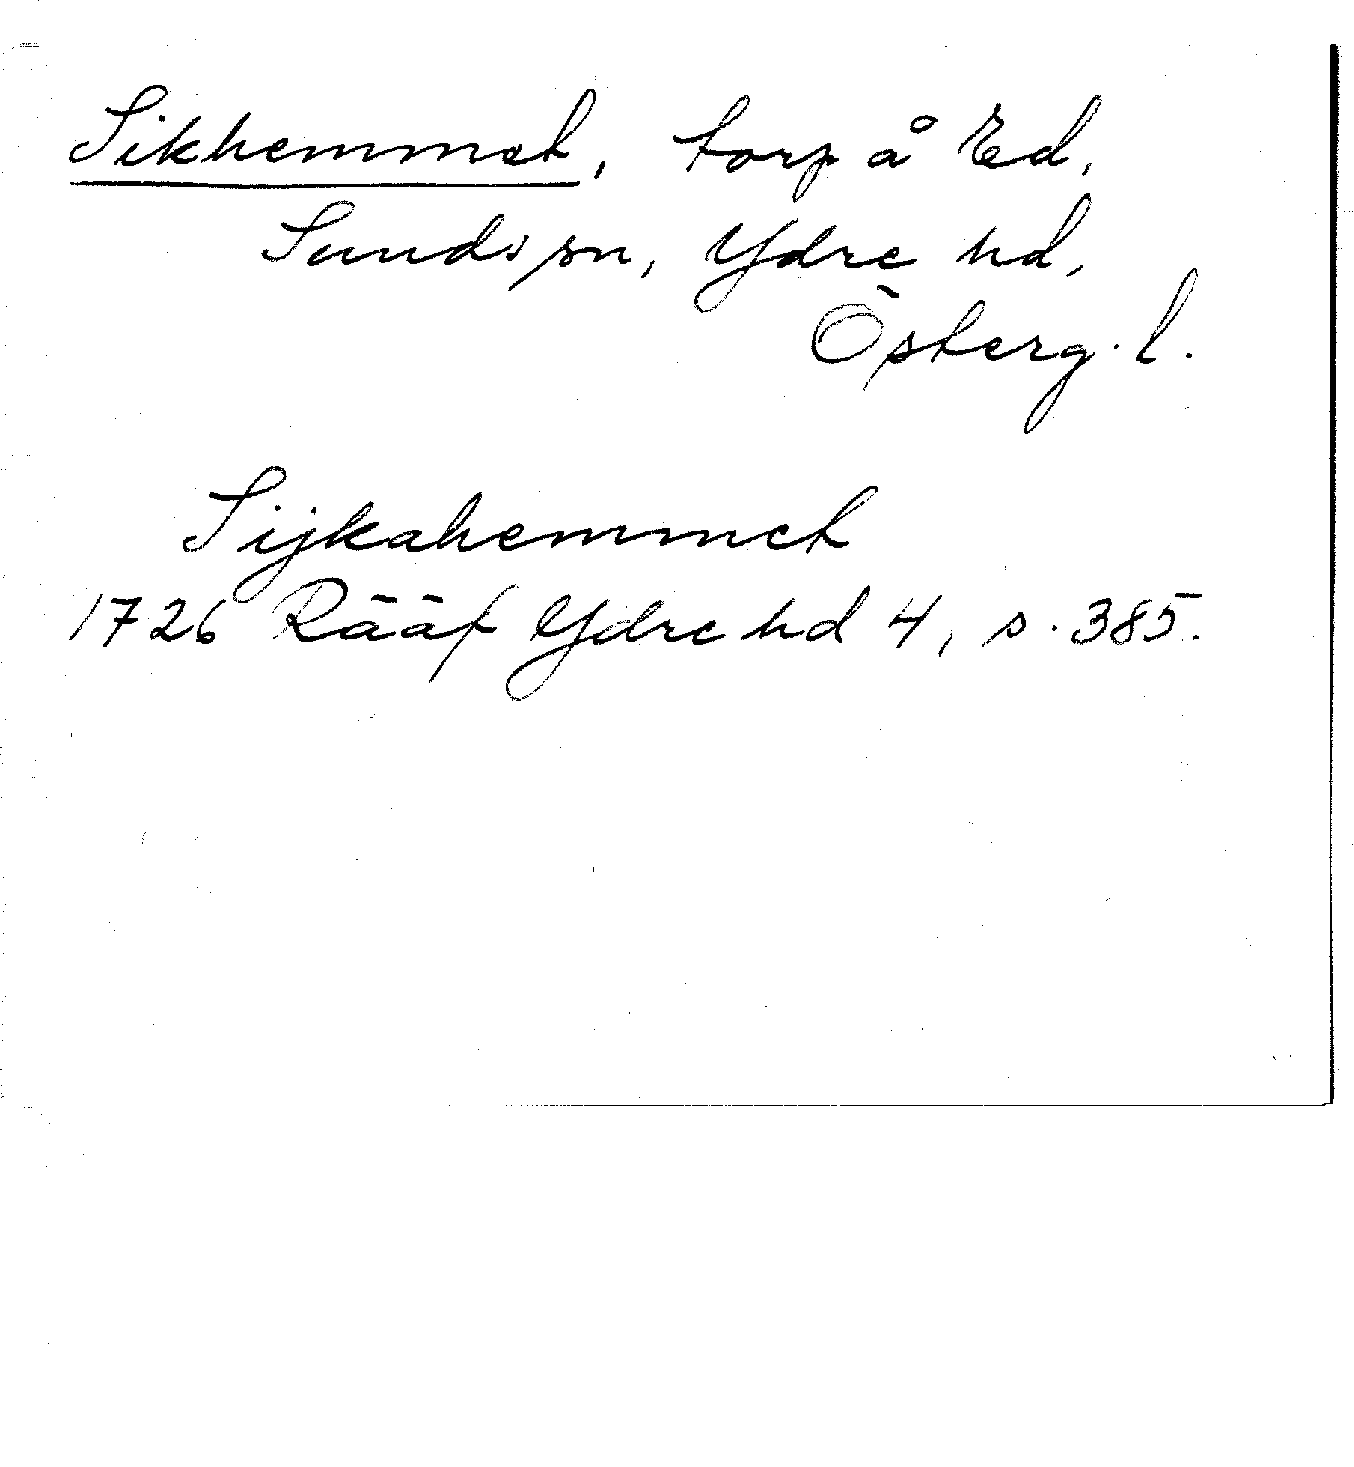 Sikhemmet, torp å Ed,
Sunds sn, Ydre hd,
Österg. l.
Sijkahemmet
1726 Rääf Ydre hd 4, s. 385.